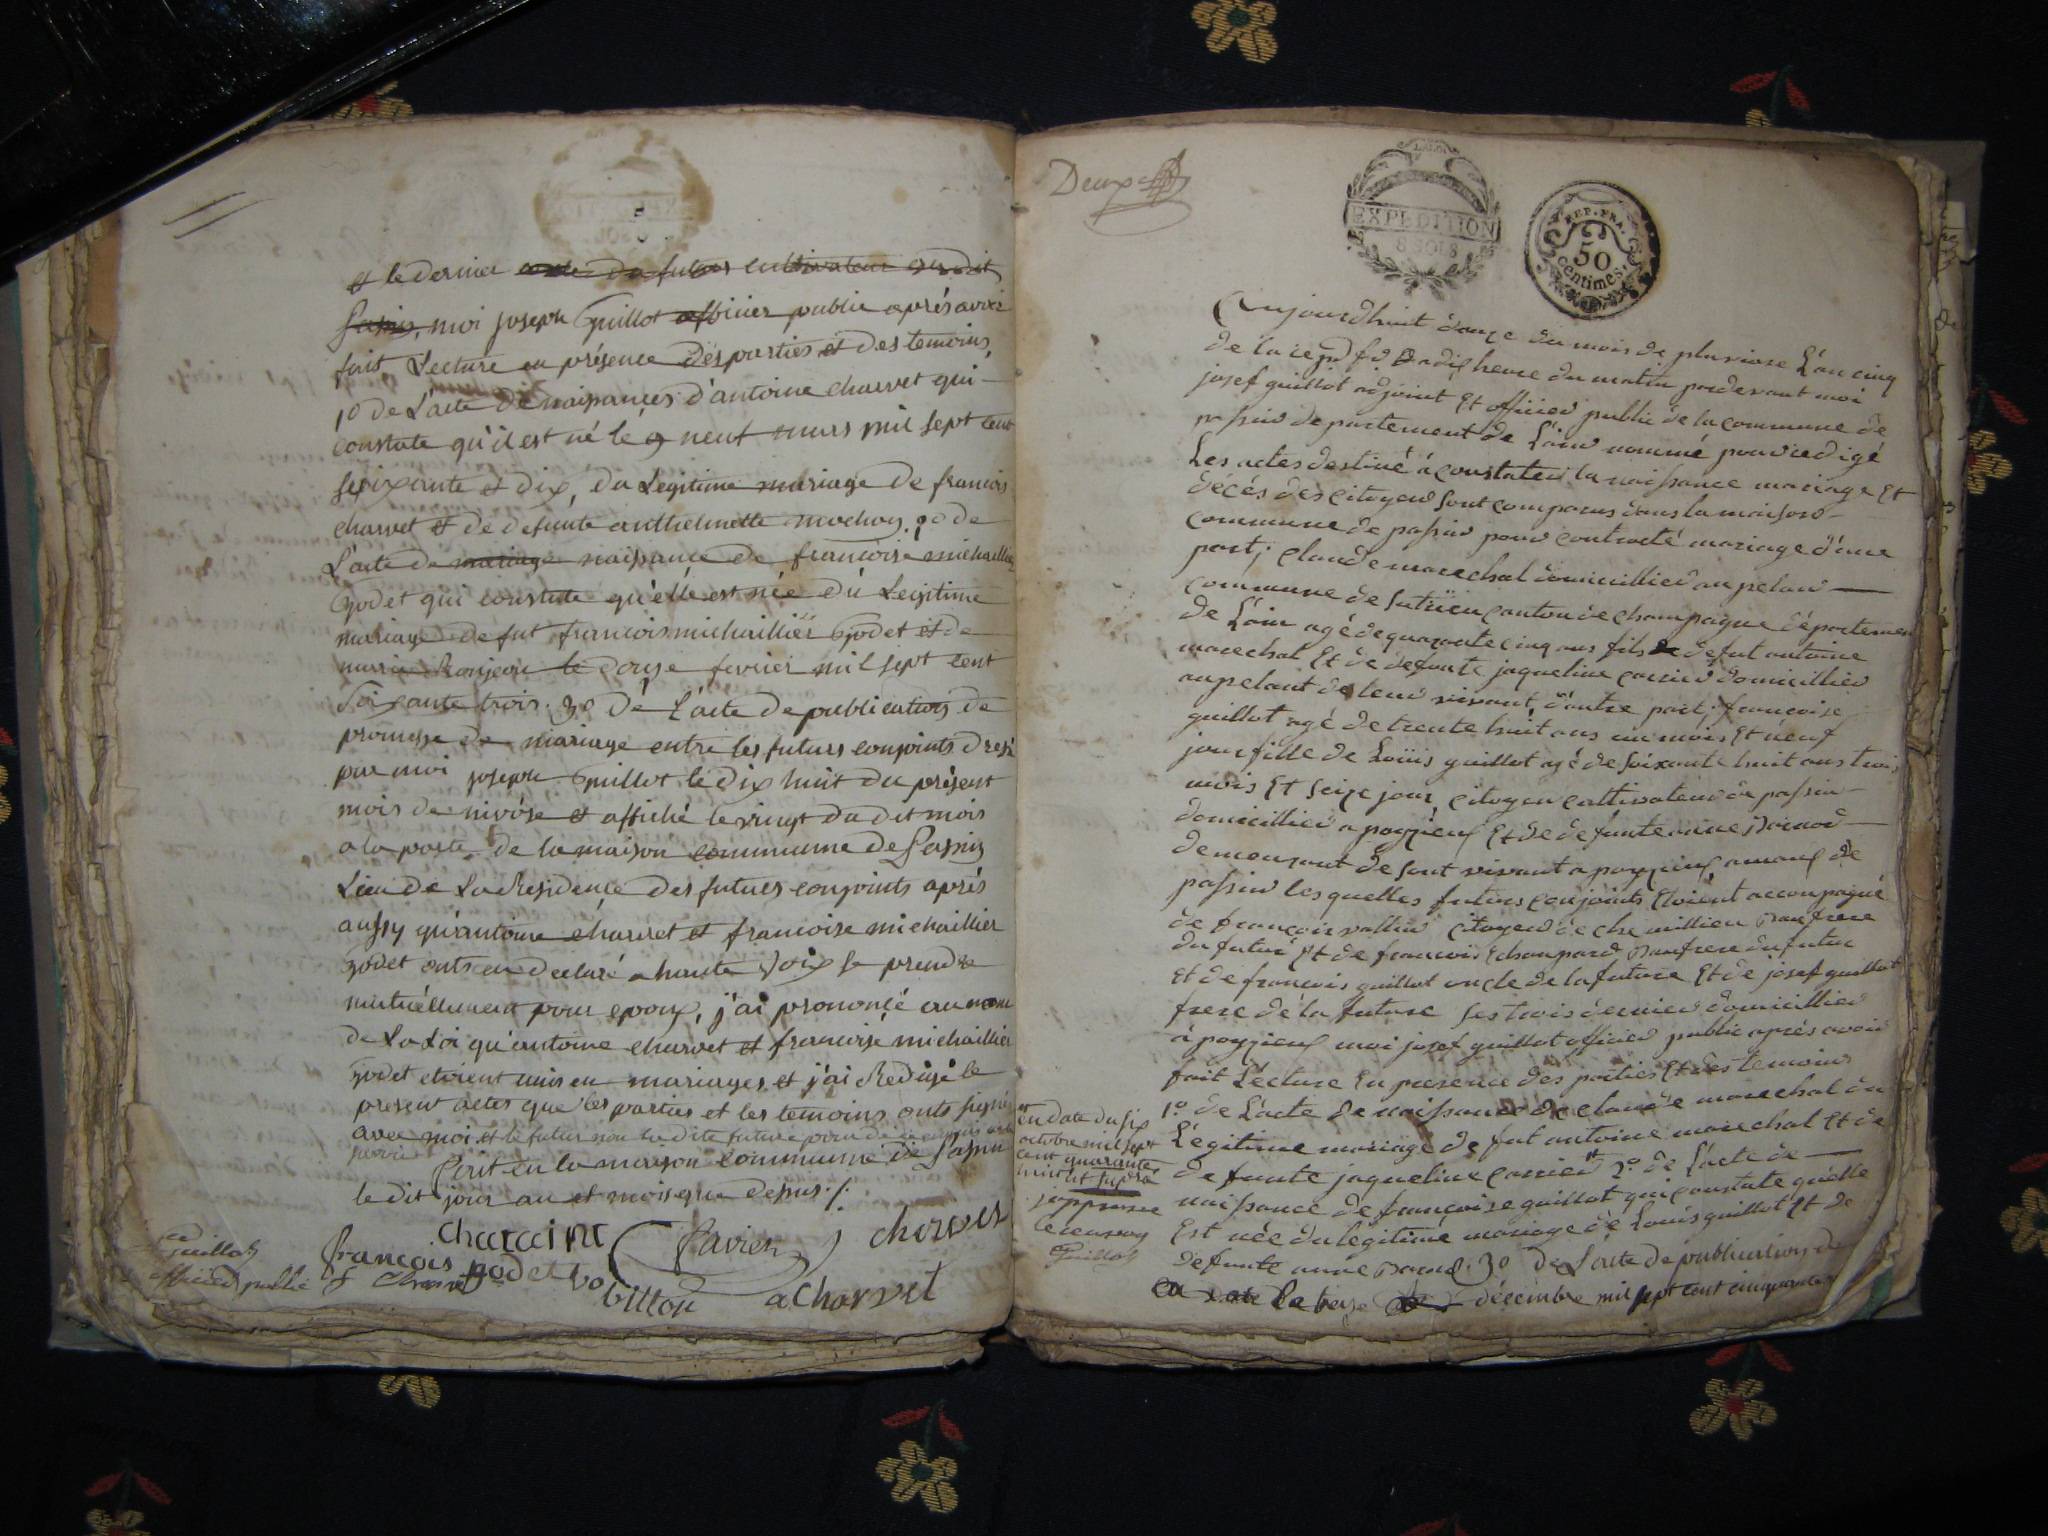 et le dernier oncle du futur cultivateur du dit
Passin, moi joseph Guillot officier public aprés avoir
fait Lecture en présence des parties et des temoins,
1º de L'acte de naissances d'antoine charvet qui
constate qu'il est né le 9 neuf mars mil sept cent
soixante et dix, du Légitime mariage de francois
charvet et de defunte anthelmette mochon. 2º de
L'acte de mariage naissance de francoise michaillier
Godet qui constate qu'élle est née du Legitime
mariage de fut francois michaillier Godet et de
marie Monjeou le douze fevrier mil sept cent
Soixante trois. 3º De L'acte de publication de
promesse de mariage entre les futurs conjoints dressé
par moi joseph Guillot le dix huit du présent
mois de nivóse et affiché le vingt du dit mois
a la porte de la maison commune de Passin
Lieu de La Residence des futurs conjoints aprés
aussy qu'antoine charvet et francoise michaillier
godet onts en declaré a haute voix se prendre
mutuéllement pour epoux, j'ai prononcé au nom
de La Loi qu'antoine charvet et francoise michaillier
godet etoient unis en mariages, et j'ai Redigé le
present actes que les parties et les temoins onts signé
avec moi et le futur non la dite future pour ne
Fait en la maison commune de Passin
le dit jour an et mois que dessus ./.
Charaint Savien J chervet
francois godet
Guillot
officier public f Charvet billon acharvet
Deux
LA LOI
EXPEDITION
8 SOLS
REP. FRA.
50
centimes.
Aujourdhuit douze du mois de pluviose L'an cinq
de la repd fs a dix heure du matin pardevant moi
josef guillot adjoint Et officier public de la commune de
passin departement de L'ain nommé pour redigé
Les actes destiné à constater la naissance mariage Et
decés des citoyen sont comparus dans la maison
commune de passin pour contracté mariage d'une
part; claude marechal domicillier au pelan
commune de Sutrieu canton de champagne départemen
de L'ain agé de quarante cinq ans fils de defut antoine
marechal Et de defunte jaqueline carrier domicillier
au pelant de leur vivant, d'autre part; francoise
guillot agé de trente huit ans un mois Et neuf
jour fille de Loüis guillot agé de soixante huit ans trois
mois Et seize jour, citoyen cultivateur de passin
domicillier a poyzieux Et de defunte anne Bornod
demeurant de sont vivant a poyzieux, amaux de
passin les quelles futurs conjoints Etoient accompagné
de francois vallin citoyen de chemillieu Baufrere
du futur Et de francois Echanpard Baufrere du futur
Et de francois guillot oncle de la future Et de josef guillot
frere de la future ses trois dernier domicillier
à poyzieux moi josef guillot officier public aprés avoir
fait Lecture En presence des parties Et des temoins
1º de L'acte de naissance de claude marechal du
Légitime mariage de fut antoine marechal Et de
defunte jaqueline carrier 2º de L'acte de
naissance de françoise guillot qui constate quélle
Est née du légitime mariage de Louis guillot Et de
defunte anne Bornod 3º de L'acte de publication de
en date le treze décembre mil sept cent cinquante
en date du six
octobre mil sept
cent quarante
huit ut supra
japprouve
le renvoy
Guillot